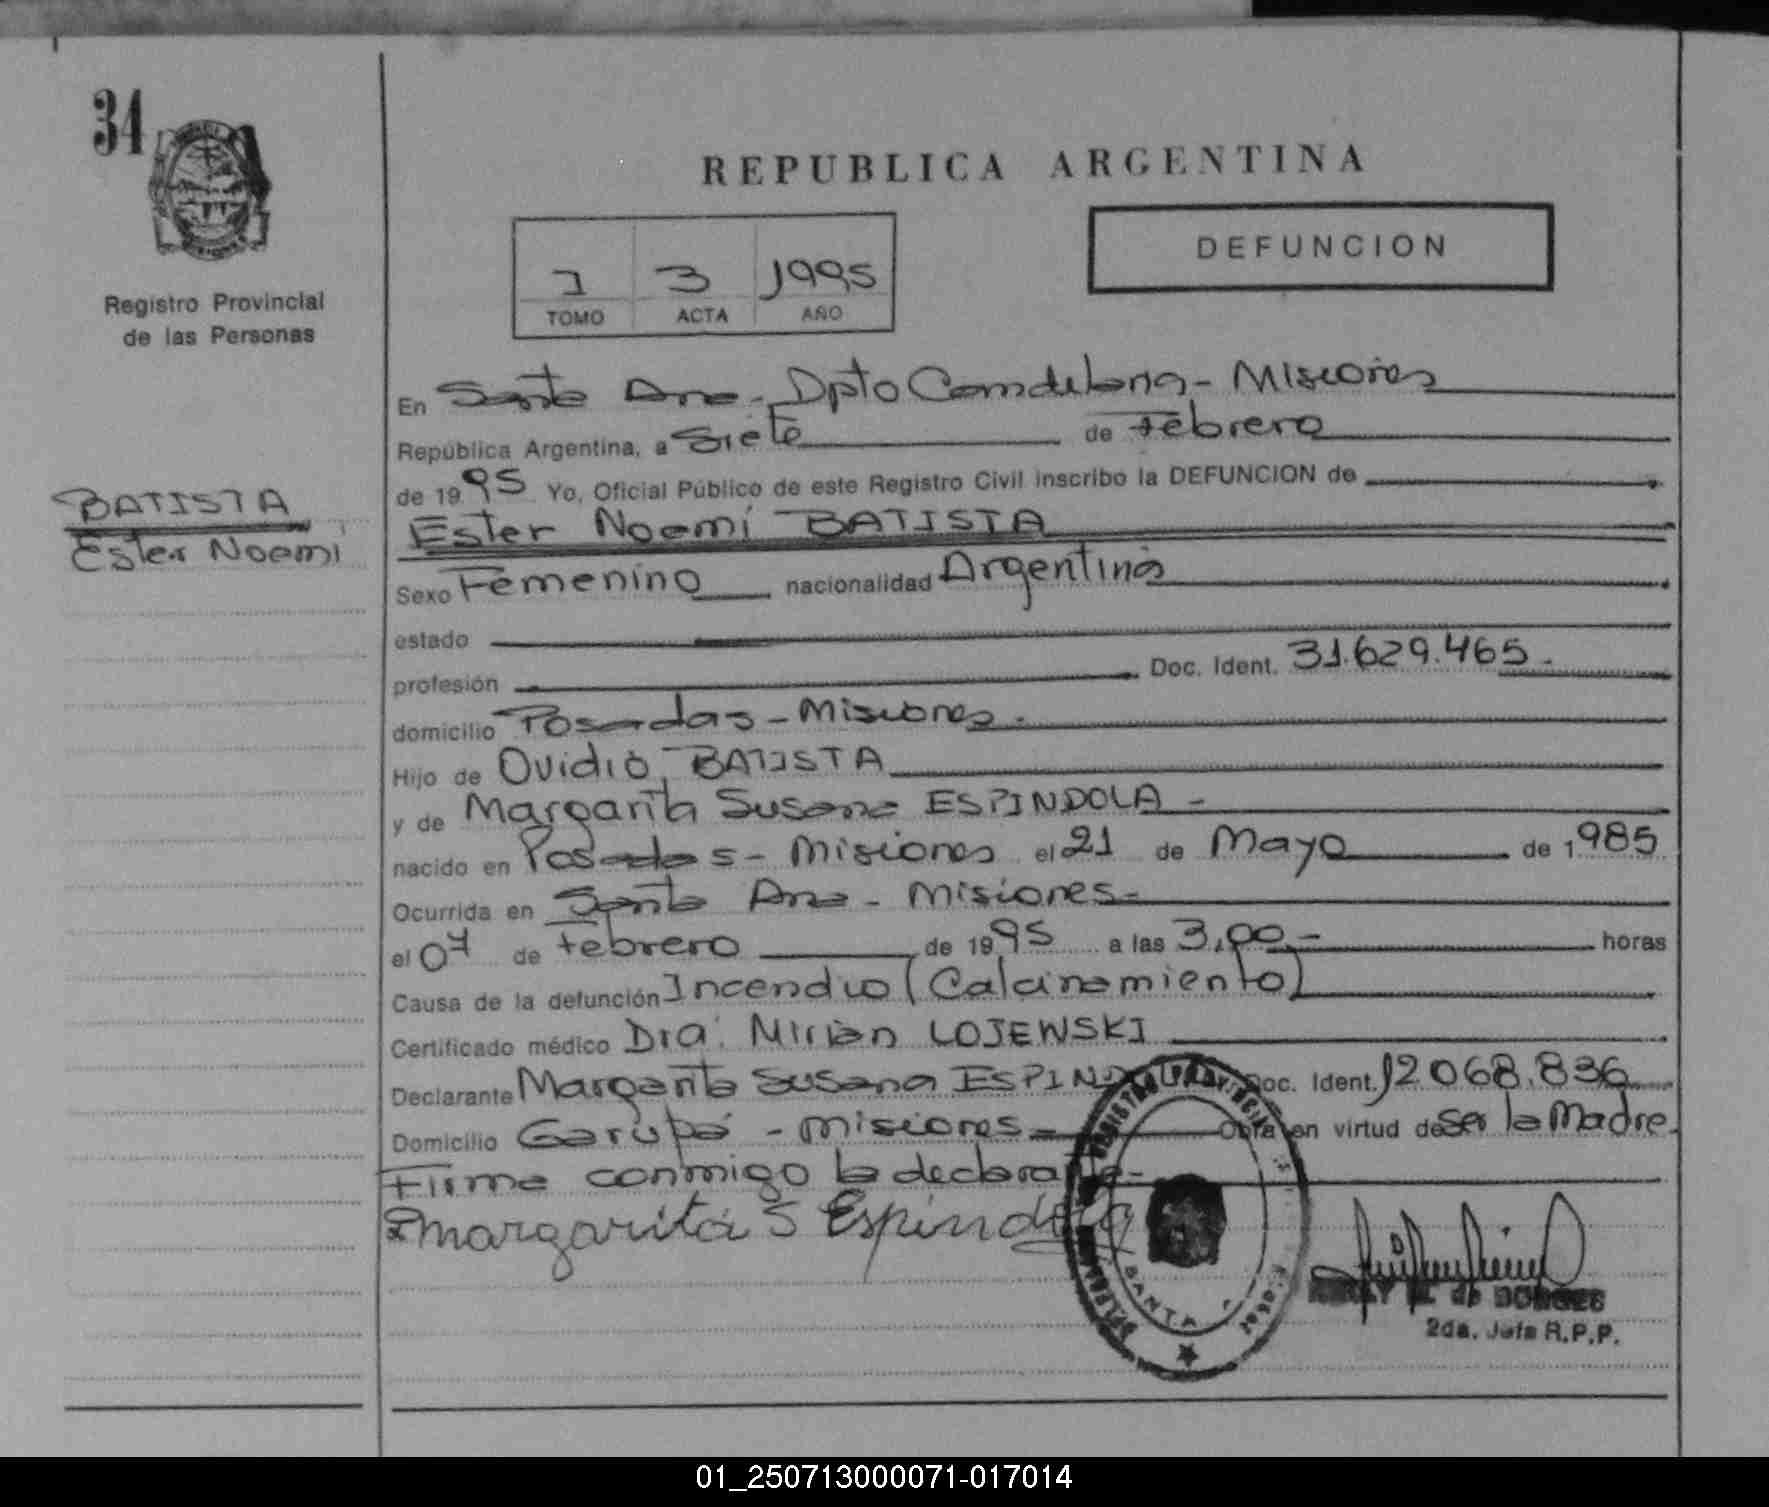 34
REPUBLICA ARGENTINA
DEFUNCION
1 3 1995
TOMO ACTA AÑO
Registro Provincial
de las Personas
BATISTA
Ester Noemí
En Santa Ana - Dpto Candelaria - Misiones
República Argentina, a Siete de Febrero
de 1995 Yo, Oficial Público de este Registro Civil inscribo la DEFUNCION de
Ester Noemí BATISTA
Sexo Femenino nacionalidad Argentina
estado
profesión Doc. Ident. 31.629.465.
domicilio Posadas - Misiones.
Hijo de Ovidio BATISTA
y de Margarita Susana ESPINDOLA -
nacido en Posadas - Misiones el 21 de Mayo de 1985
Ocurrida en Santa Ana - Misiones-
el 07 de Febrero de 1995 a las 3,00.- horas
Causa de la defunción Incendio (Calcinamiento)
Certificado médico Dra. Mirian LOJEWSKI
Declarante Margarita Susana ESPINDOLA Doc. Ident. 12068.836
Domicilio Garupá - Misiones - Obra en virtud de ser la Madre.
Firma conmigo la declarante-
Margarita S Espindola
SANTA
de BORGES
2da. Jefa R.P.P.
01_250713000071-017014